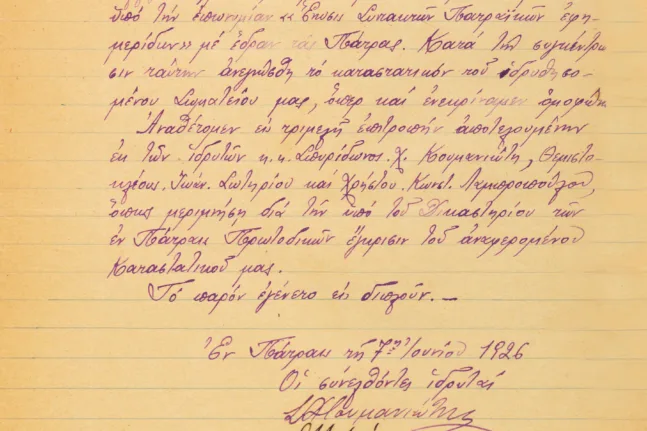 ὑπό τήν ἐπωνυμίαν «Ἕνωσις Συντακτῶν Πατραϊκῶν ἐφη-
μερίδων» μέ ἕδραν τάς Πάτρας. Κατά τήν συγκέντρω
σιν ταύτην ἀνεγνώσθη τό καταστατικόν τοῦ ἱδρυθησο-
μένου Σωματείου μας, ὅπερ καί ἐνεκρίναμεν ὁμοφώνως.
Ἀναθέτομεν εἰς τριμελῆ ἐπιτροπήν ἀποτελουμένην
ἐκ τῶν ἱδρυτῶν κ.κ. Σπυρίδωνος. Χ. Κουμανιώτη, Θεμιστο-
κλέους. Ἰωάν. Σωτηρίου καί Χρήστου. Κωνστ. Λαμπροπούλου,
ὅπως μεριμνήσῃ διά τήν ὑπό τοῦ Δικαστηρίου τῶν
ἐν Πάτραις Πρωτοδικῶν ἔγκρισιν τοῦ ἀναφερομένου
Καταστατικοῦ μας.
Τό παρόν ἐγένετο εἰς διπλοῦν. —
Ἐν Πάτραις τῇ 7ῃ Ἰουνίου 1926
Οἱ συνελθόντες ἱδρυταί
ΣΧΚουμανιώτης